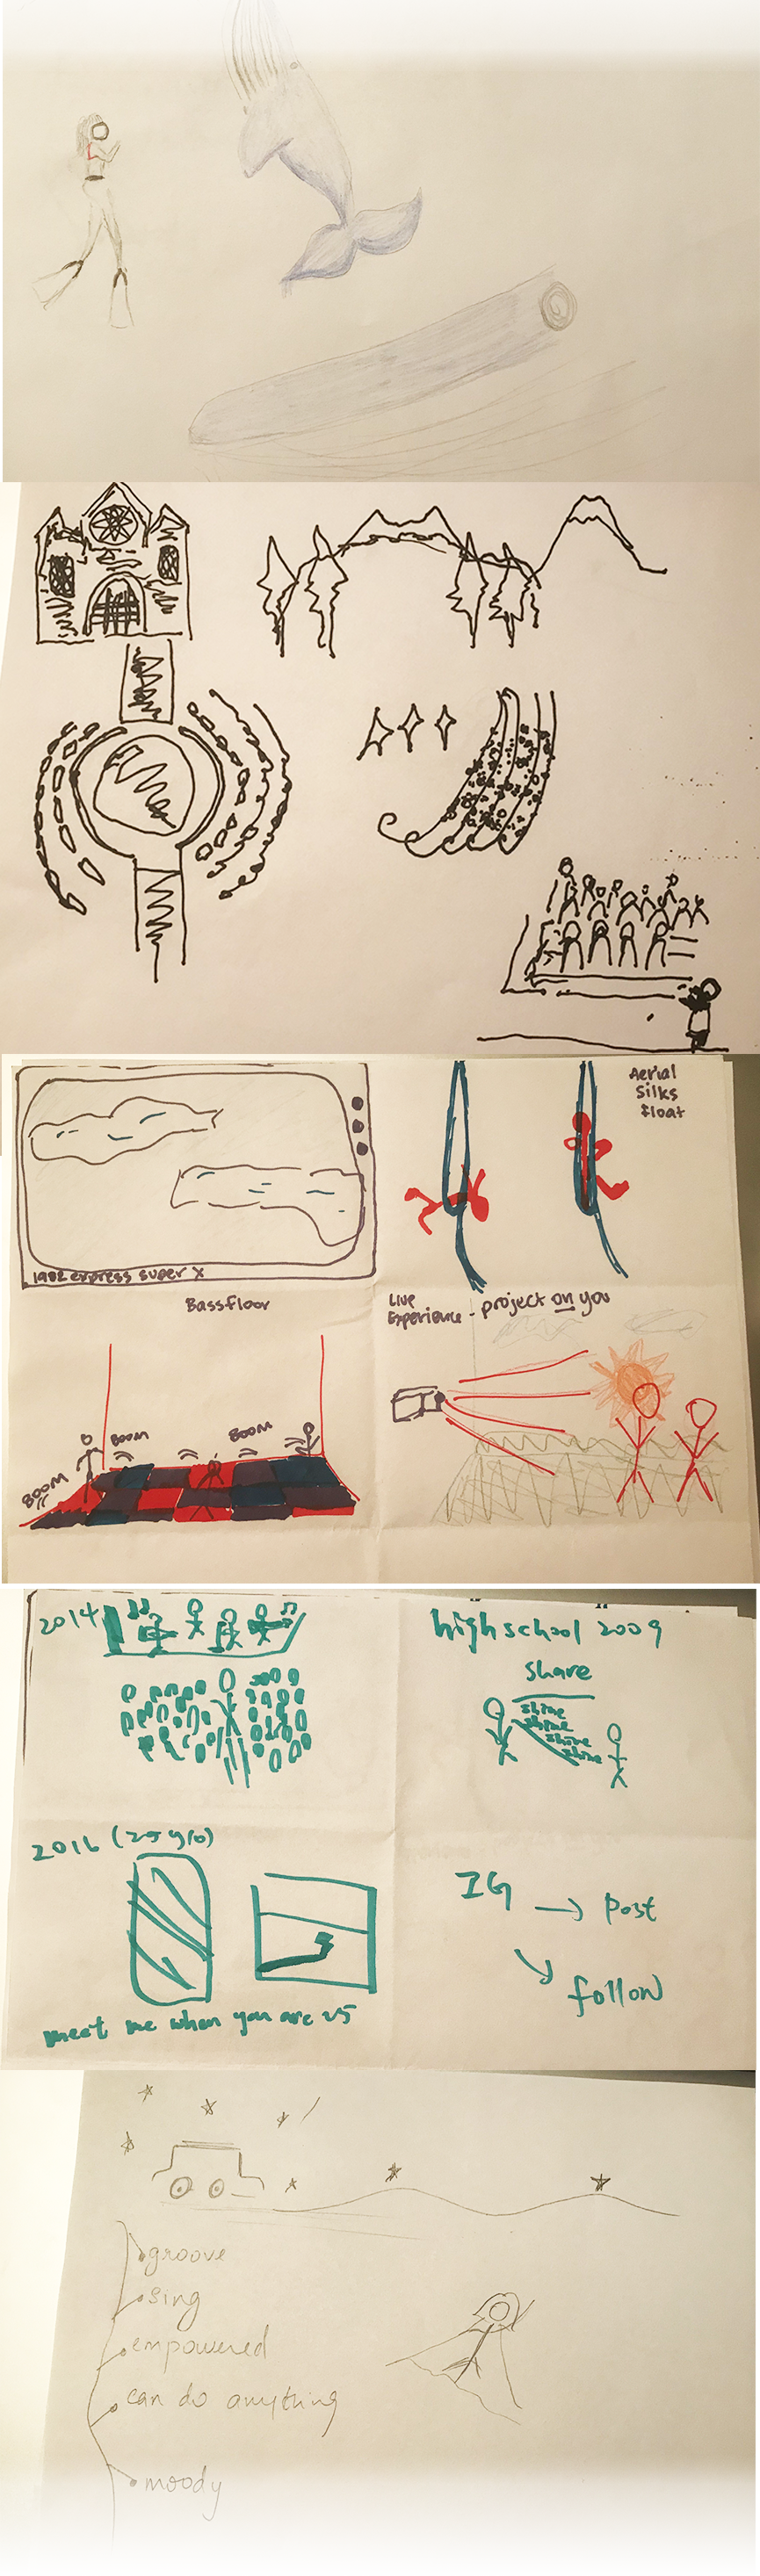 Aerial
Silks
float
1982 express super X
Bassfloor
Live
Experience - project on you
BOOM
BOOM
BOOM
2014
high school 2009
share
shine
shine
shine
shine
2016 (25 y/o)
meet me when you are 25
IG → post
follow
groove
sing
empowered
can do anything
moody